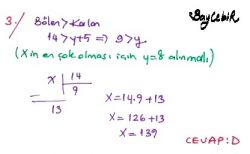 BayCebir
3./ Bölen > Kalan
14 > y+5 => 9 > y
(X in en çok olması için y=8 alınmalı)
x | 14
9
13
x = 14.9 + 13
x = 126 + 13
x = 139
CEVAP: D